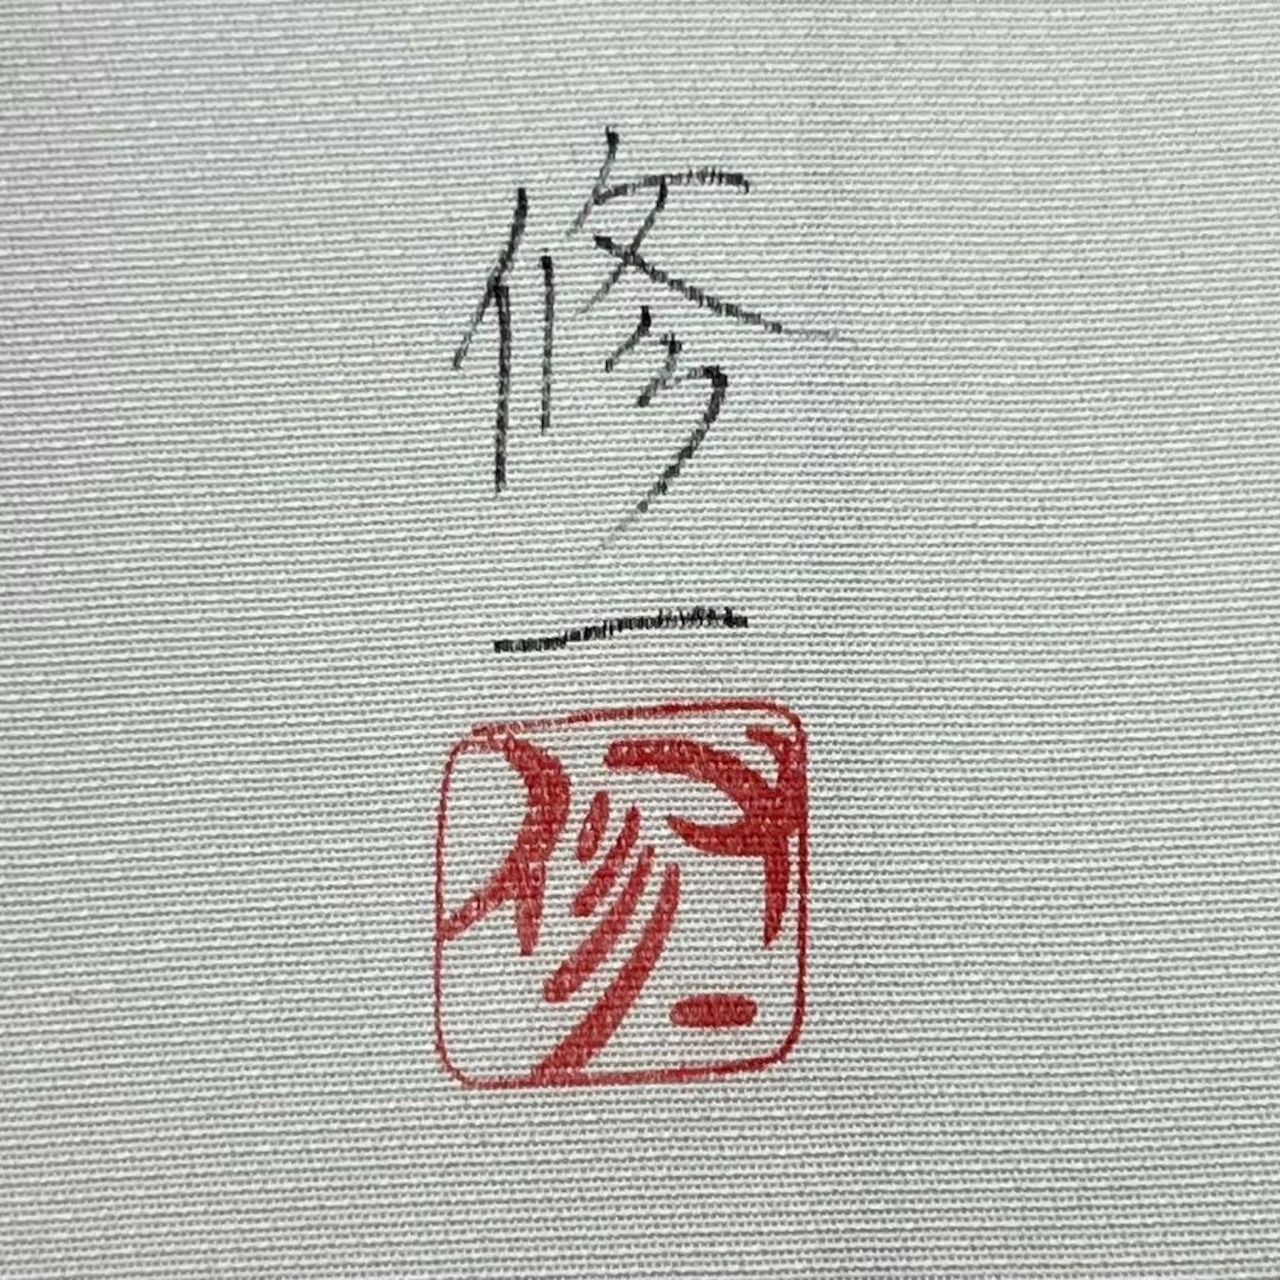 修
一
修一